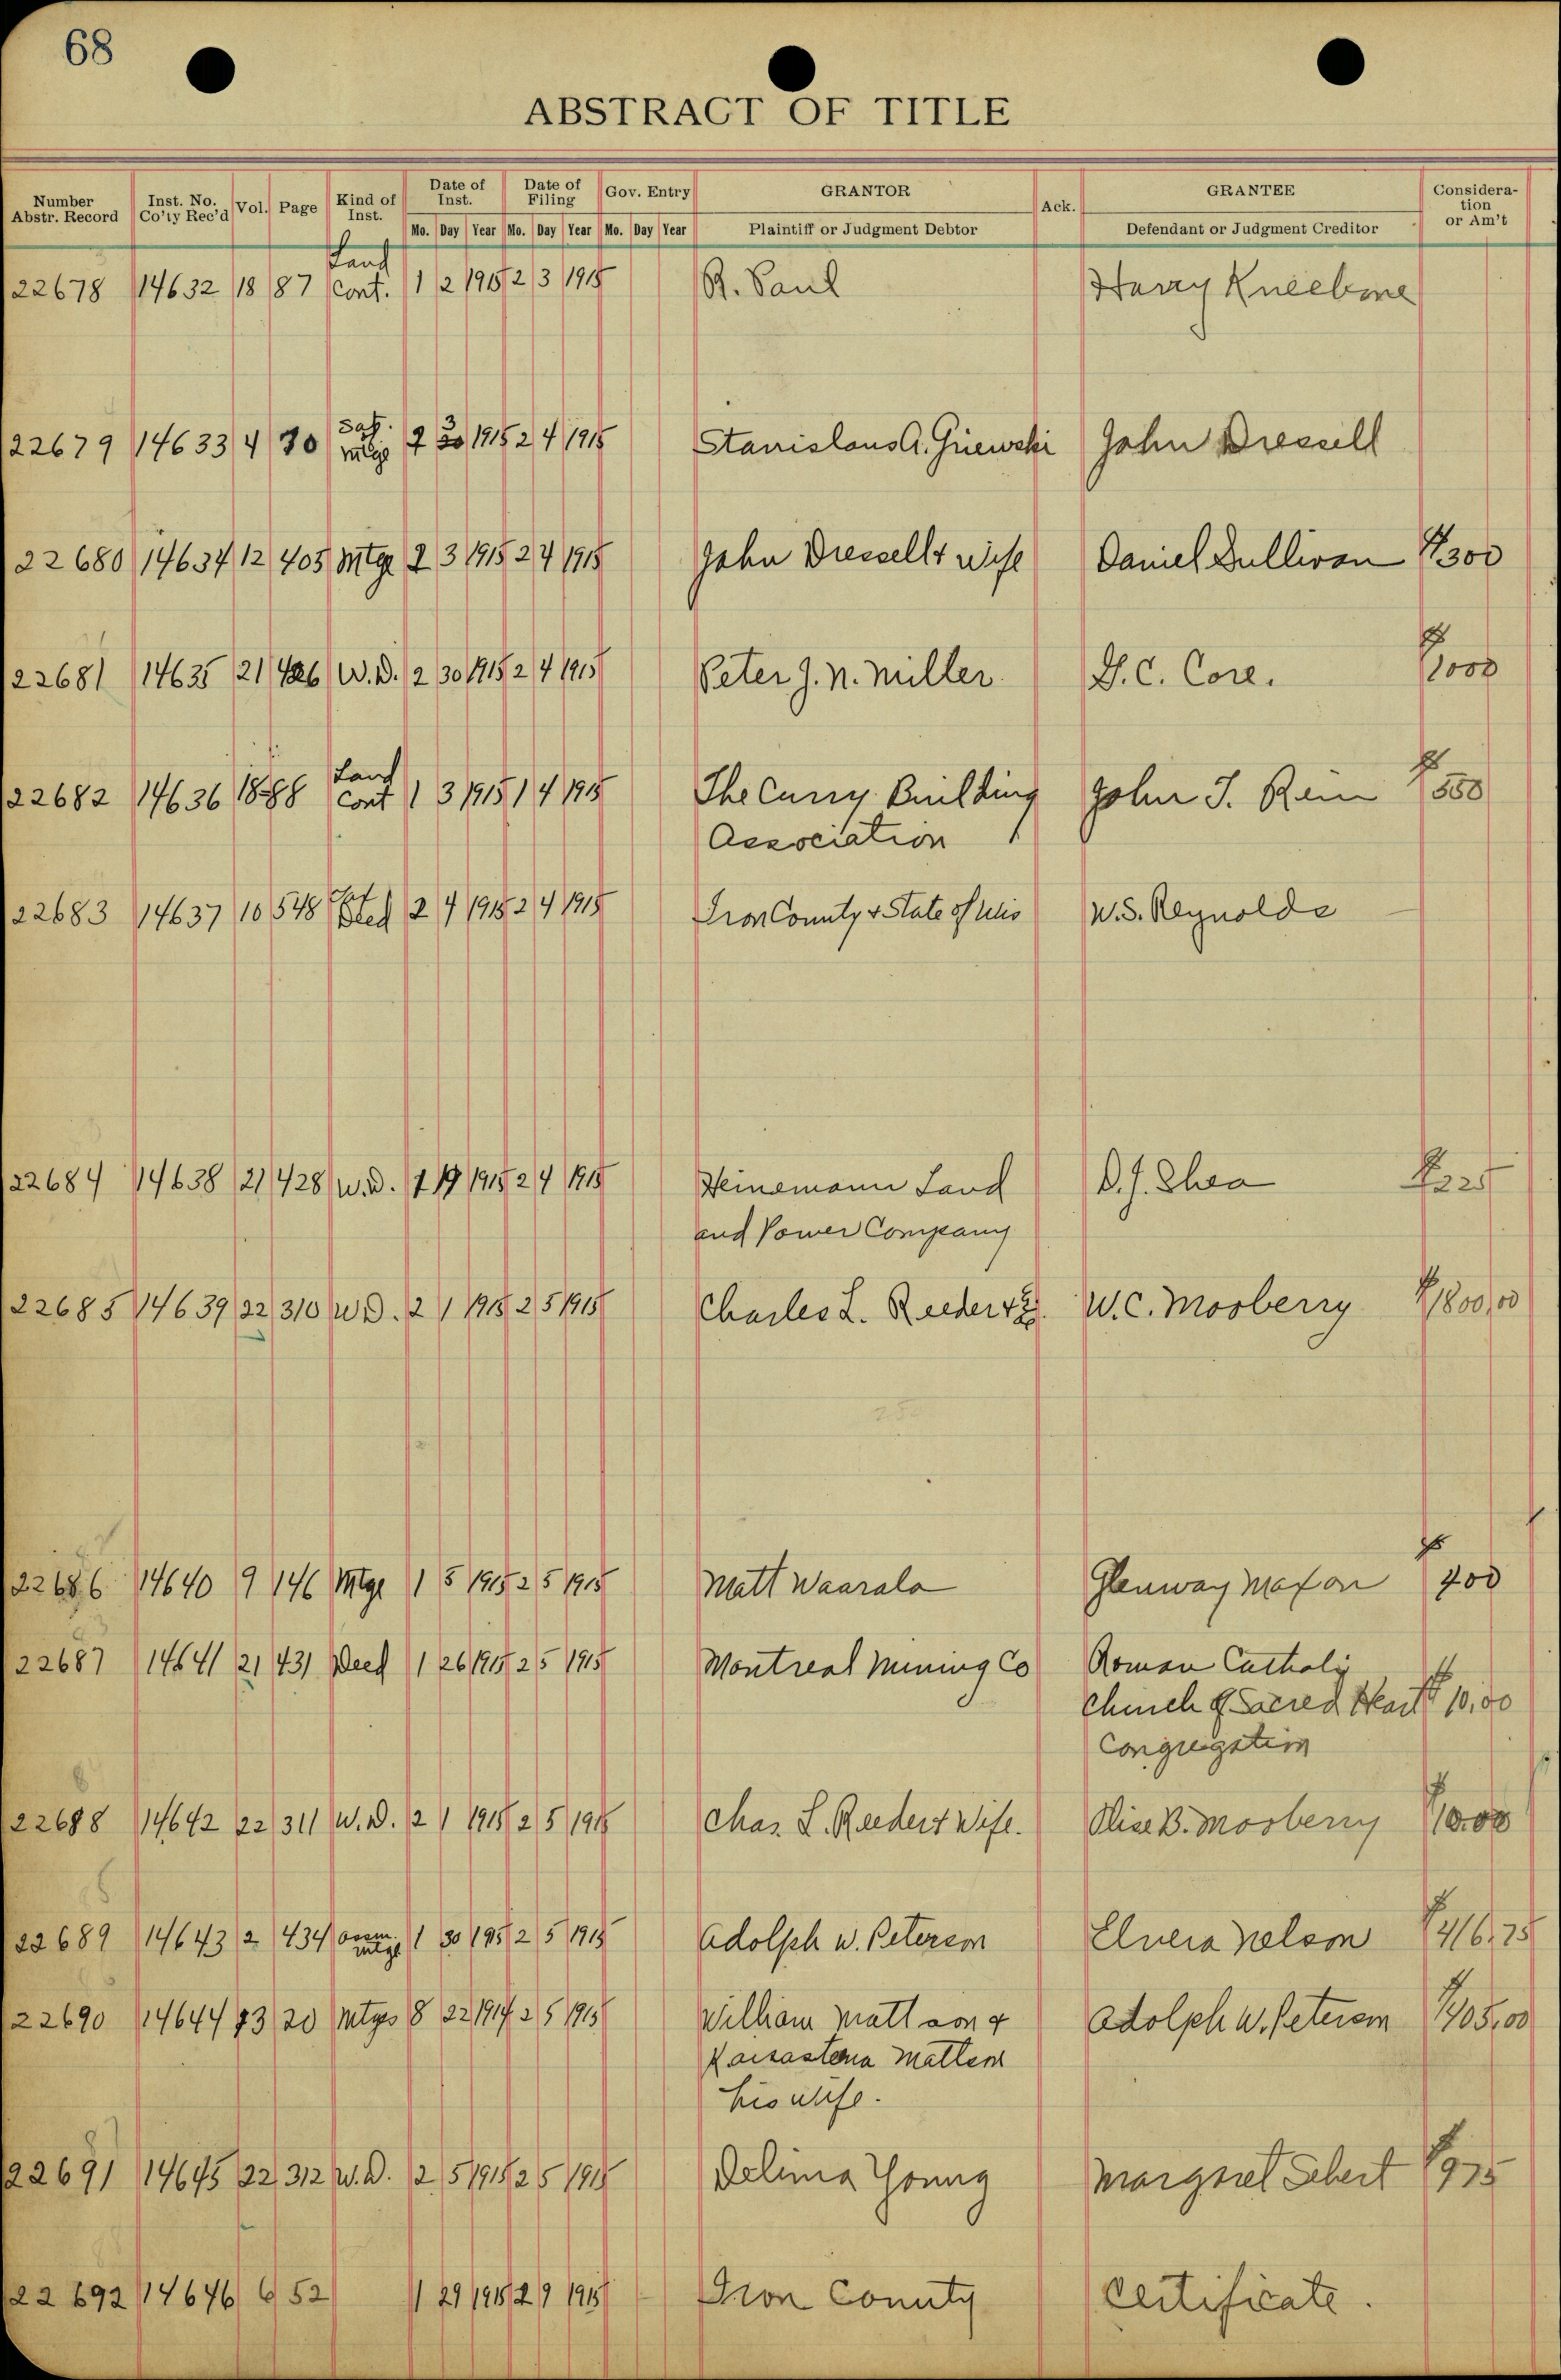 68
ABSTRACT OF TITLE
Number Abstr. Record Inst. No. Co'ty Rec'd Vol. Page Kind of Inst. Date of Inst. Date of Filing Gov. Entry GRANTOR Ack. GRANTEE Consideration or Am't
Mo. Day Year Mo. Day Year Mo. Day Year Plaintiff or Judgment Debtor Defendant or Judgment Creditor
22678 14632 18 87 Land Cont. 1 2 1915 2 3 1915 R. Paul Harry Kneebone
22679 14633 4 70 Sat. mtge 2 3 1915 2 4 1915 Stanislaus A. John Dressell
22680 14634 12 405 Mtge 2 3 1915 2 4 1915 John Dressell & wife Daniel Sullivan $300
22681 14635 21 426 W.D. 2 30 1915 2 4 1915 Peter J. N. Miller D.C. Core. $1000
22682 14636 18 88 Land Cont 1 3 1915 1 4 1915 The Curry Building John J. Rein $550
Association
22683 14637 10 548 2 4 1915 2 4 1915 Iron County & State of Wis W.S. Reynolds
22684 14638 21 428 W.D. 1 19 1915 2 4 1915 Heinemann Land D.J. Shea $225
and Power Company
22685 14639 22 310 W D. 2 1 1915 2 5 1915 Charles L. Reeder & W.C. Mosberry $1800.00
22686 14640 9 146 Mtge 1 5 1915 2 5 1915 Matt Waarala Glenway Maxon $400
22687 14641 21 431 Deed 1 26 1915 2 5 1915 Montreal Mining Co Roman Catholic
Church of Sacred Heart $10.00
Congregation
22688 14642 22 311 W.D. 2 1 1915 2 5 1915 Chas. L. Reeder & Wife. Olise B. Mosberry $10.00
22689 14643 2 434 assn. mtge 1 30 1915 2 5 1915 Adolph W. Peterson Elvera Nelson $416.75
22690 14644 13 20 Mtge 8 22 1914 2 5 1915 William Mattson & Adolph W. Peterson $405.00
Mattson
his wife.
22691 14645 22 312 W.D. 2 5 1915 2 5 1915 Delima Young Margaret Sebert $975
22692 14646 6 52 1 29 1915 2 9 1915 Iron County Certificate.